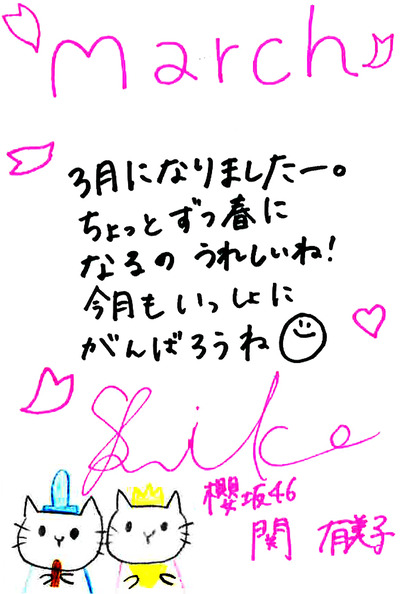 March
3月になりましたー。
ちょっとずつ春に
なるの うれしいね!
今月もいっしょに
がんばろうね
櫻坂46
関 有美子